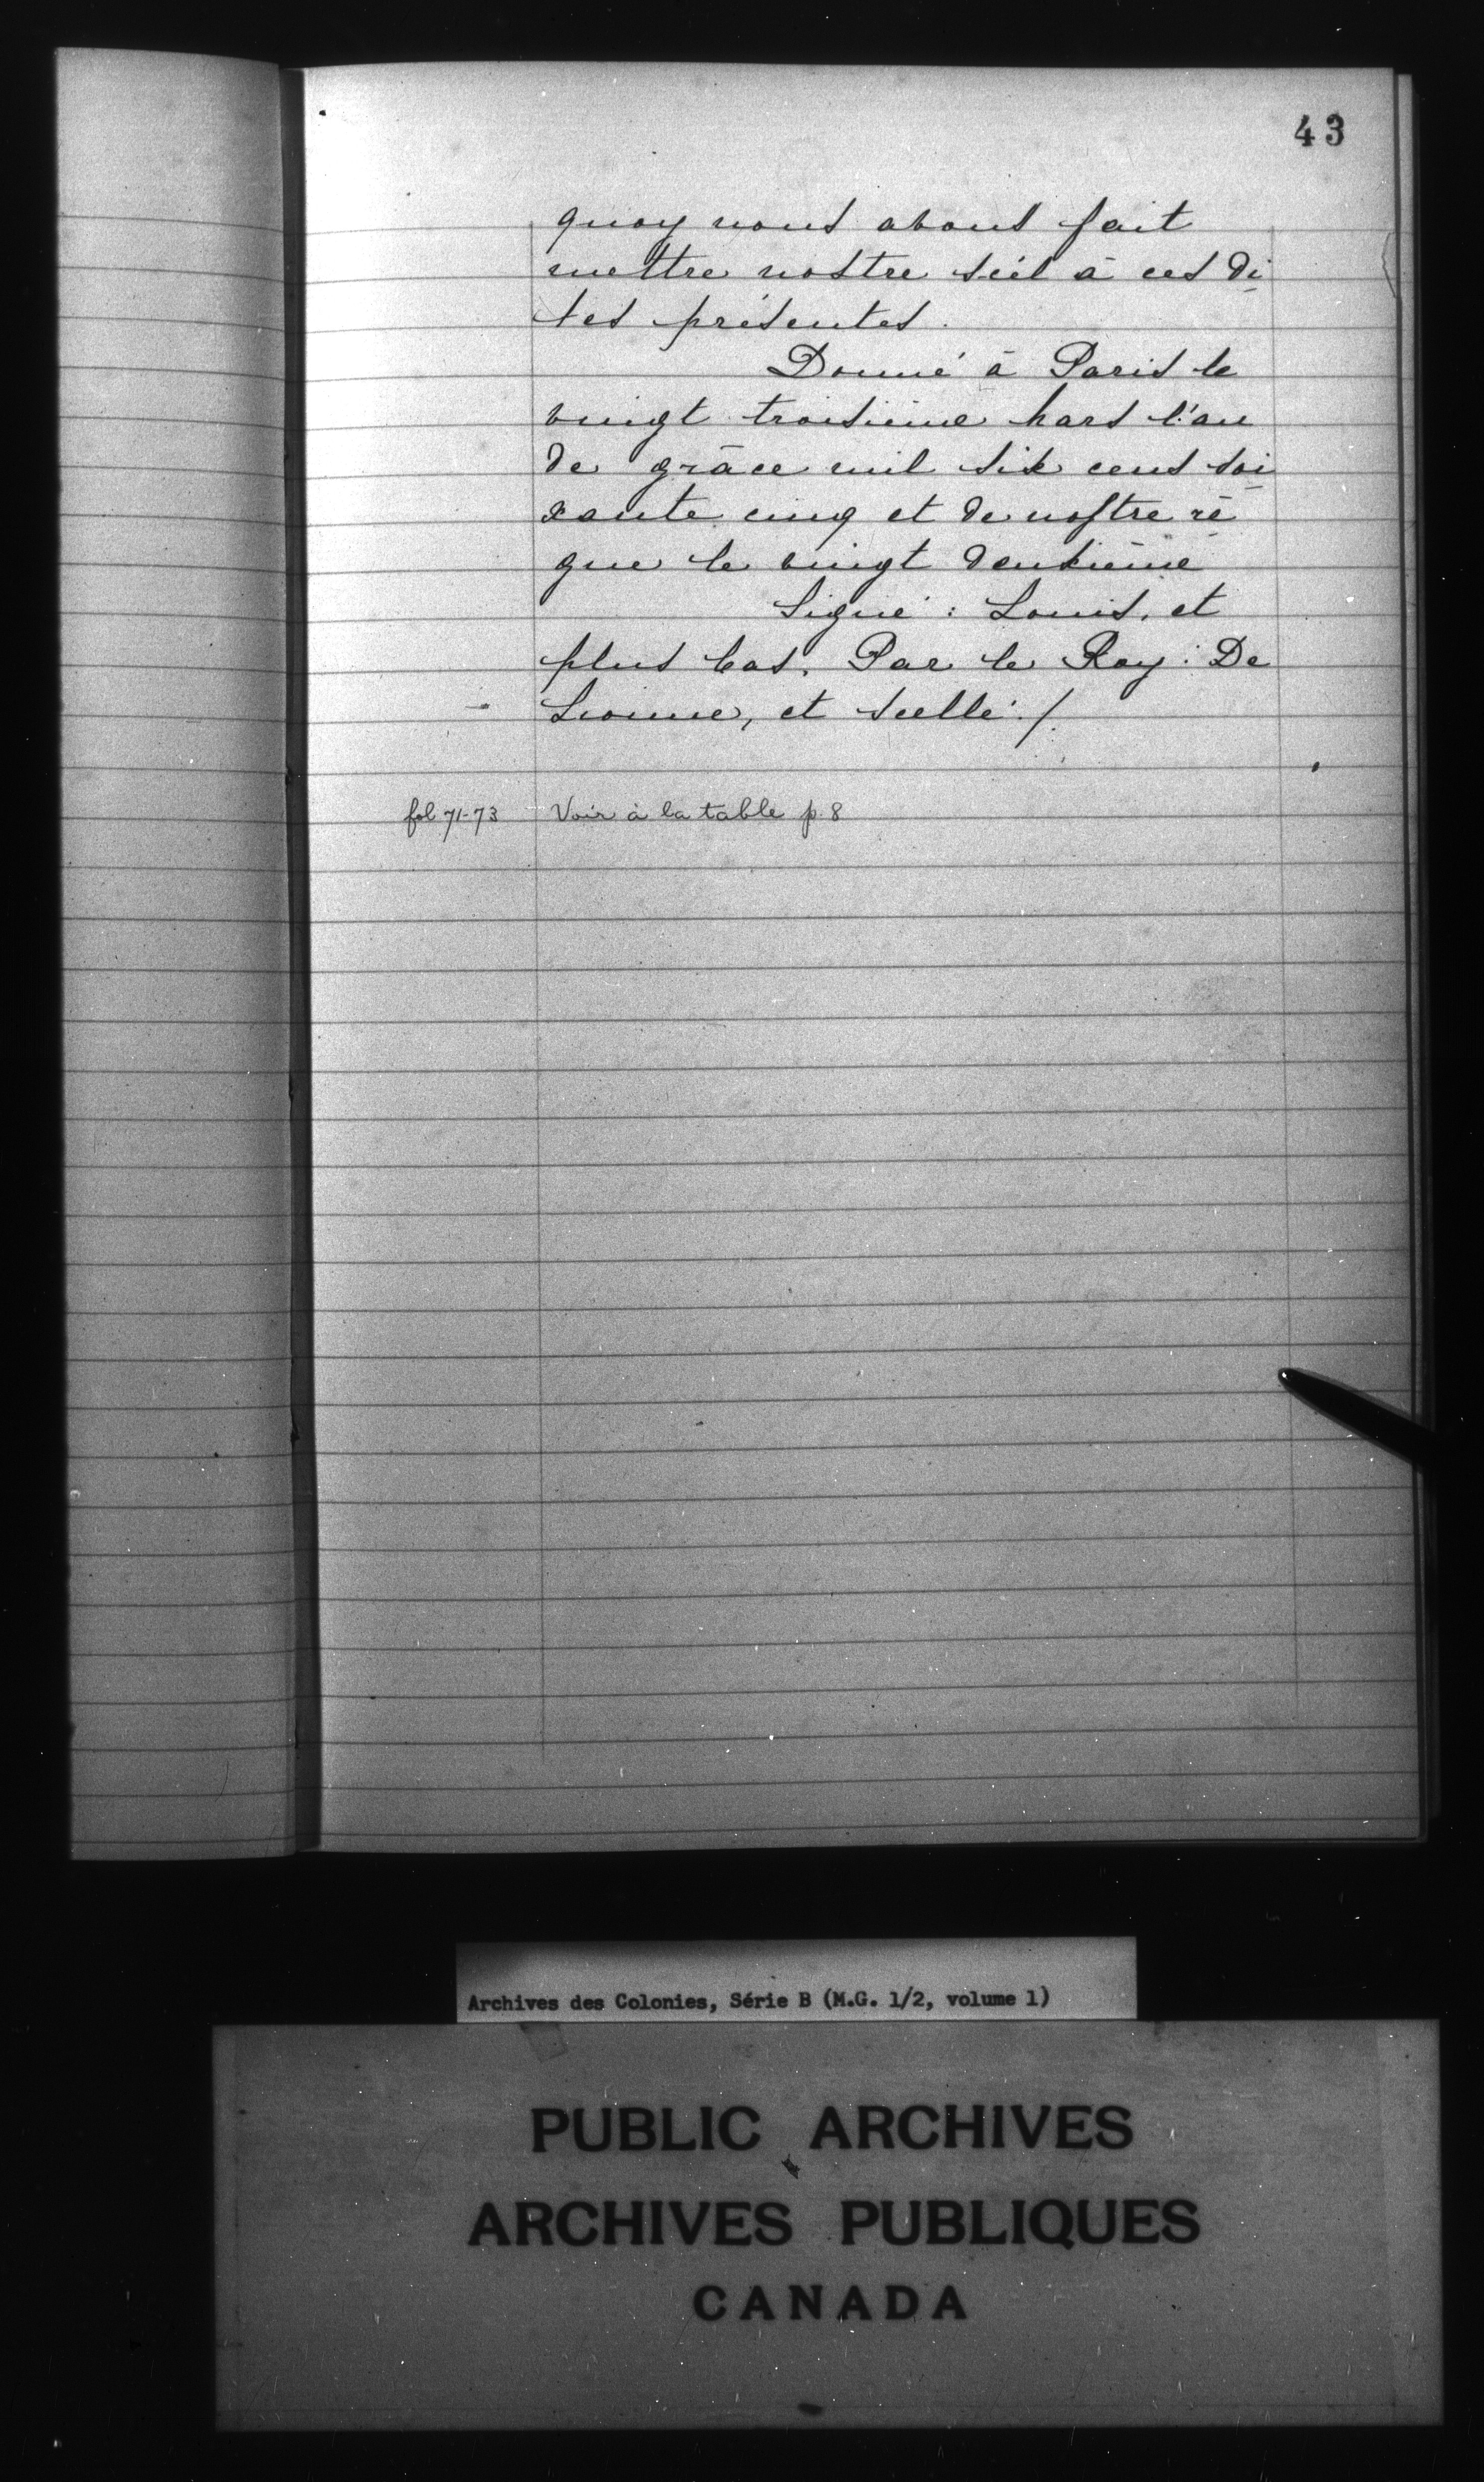 43
quoy nous avons fait
mettre nostre scél à ces di
tes présentes.
Donné à Paris le
vingt troisième Mars l'an
de grâce mil six cens soi
xante cinq et de nostre rè
gne le vingt deuxième
Signé : Louis, et
plus bas, Par le Roy : De
Lionne, et scellé ./.
fol 71-73 Voir à la table p. 8
Archives des Colonies, Série B (M.G. 1/2, volume 1)
PUBLIC ARCHIVES
ARCHIVES PUBLIQUES
CANADA